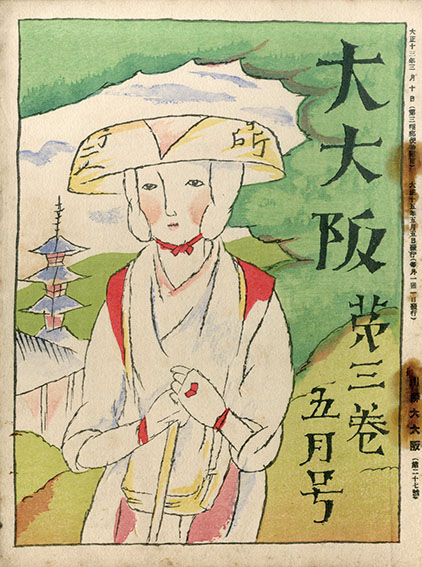 大大阪
第三卷
五月号
大正十三年三月十日(第三種郵便物認可)
大正十五年五月五日發行(毎月一回一日發行)
大大阪
(第二十七號)
所